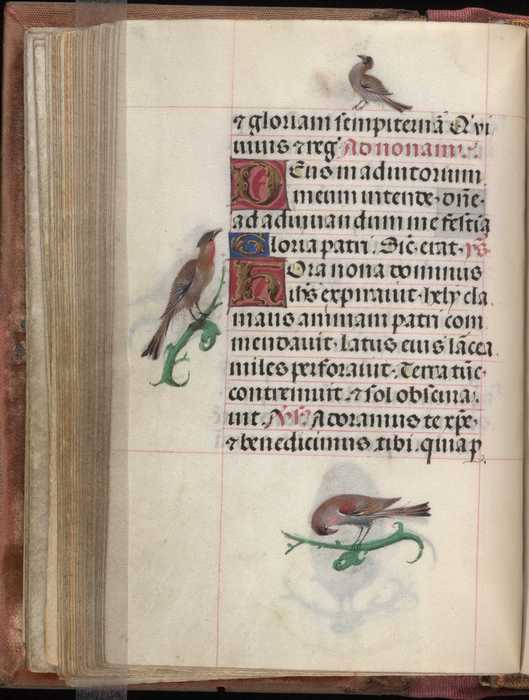 ⁊ gloriam sempiternā Qui
viuis ⁊ reg̃ Ad nonam v̾.
Deus in adiutorium
meum intende. dn̄e
ad adiuuandum me festia
Gloria patri. Sic̄ erat. ys̃
Hora nona dominus
ih̄s expirauit. hely cla
mans animam patri com
mendauit. latus eius lācea
miles perforauit. Terra tūc
contremuit. ⁊ sol obscura
uit. v̾s̃ Adoramus te xp̄e.
⁊ benedicimus tibi. quia p̱